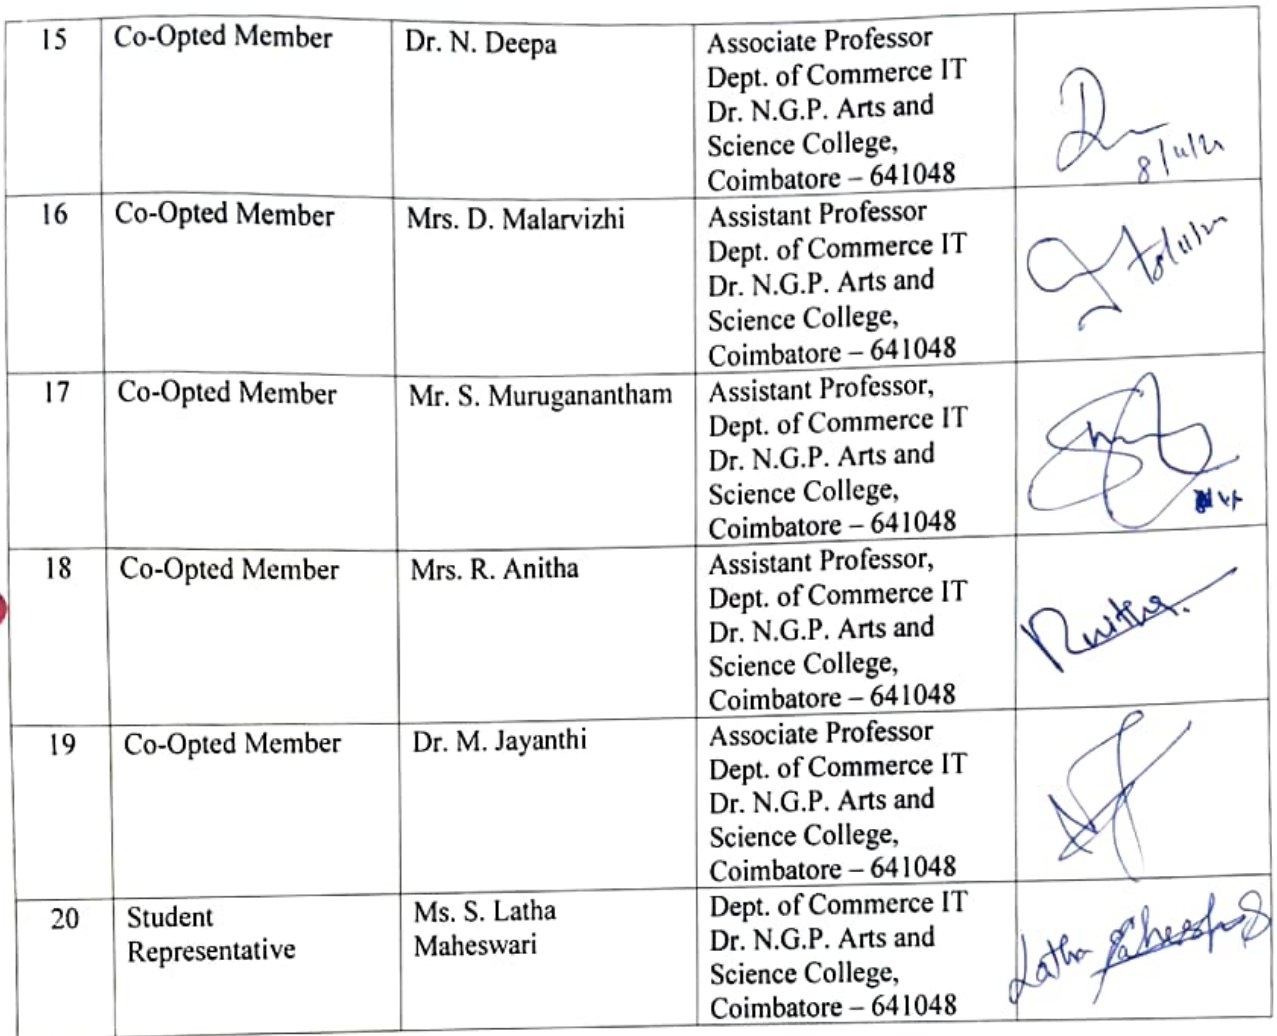 15 Co-Opted Member Dr. N. Deepa Associate Professor
Dept. of Commerce IT
Dr. N.G.P. Arts and
Science College,
Coimbatore – 641048
16 Co-Opted Member Mrs. D. Malarvizhi Assistant Professor
Dept. of Commerce IT
Dr. N.G.P. Arts and
Science College,
Coimbatore – 641048
17 Co-Opted Member Mr. S. Muruganantham Assistant Professor,
Dept. of Commerce IT
Dr. N.G.P. Arts and
Science College,
Coimbatore – 641048
18 Co-Opted Member Mrs. R. Anitha Assistant Professor,
Dept. of Commerce IT
Dr. N.G.P. Arts and
Science College,
Coimbatore – 641048
19 Co-Opted Member Dr. M. Jayanthi Associate Professor
Dept. of Commerce IT
Dr. N.G.P. Arts and
Science College,
Coimbatore – 641048
20 Student Ms. S. Latha Dept. of Commerce IT
Representative Maheswari Dr. N.G.P. Arts and
Science College,
Coimbatore – 641048
Latha